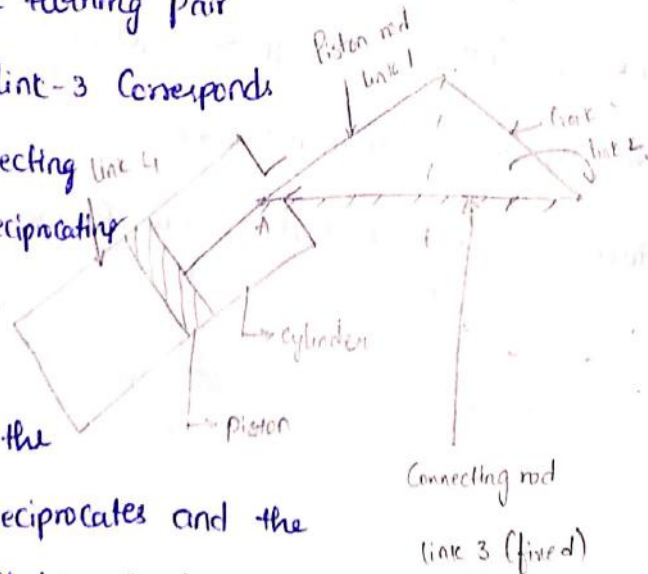 turning pair
link-3 Corresponds
ecting
eciprocating
the
eciprocates and the
Piston rod
link 1
Crank
link 2
link 4
A
cylinder
piston
Connecting rod
link 3 (fixed)